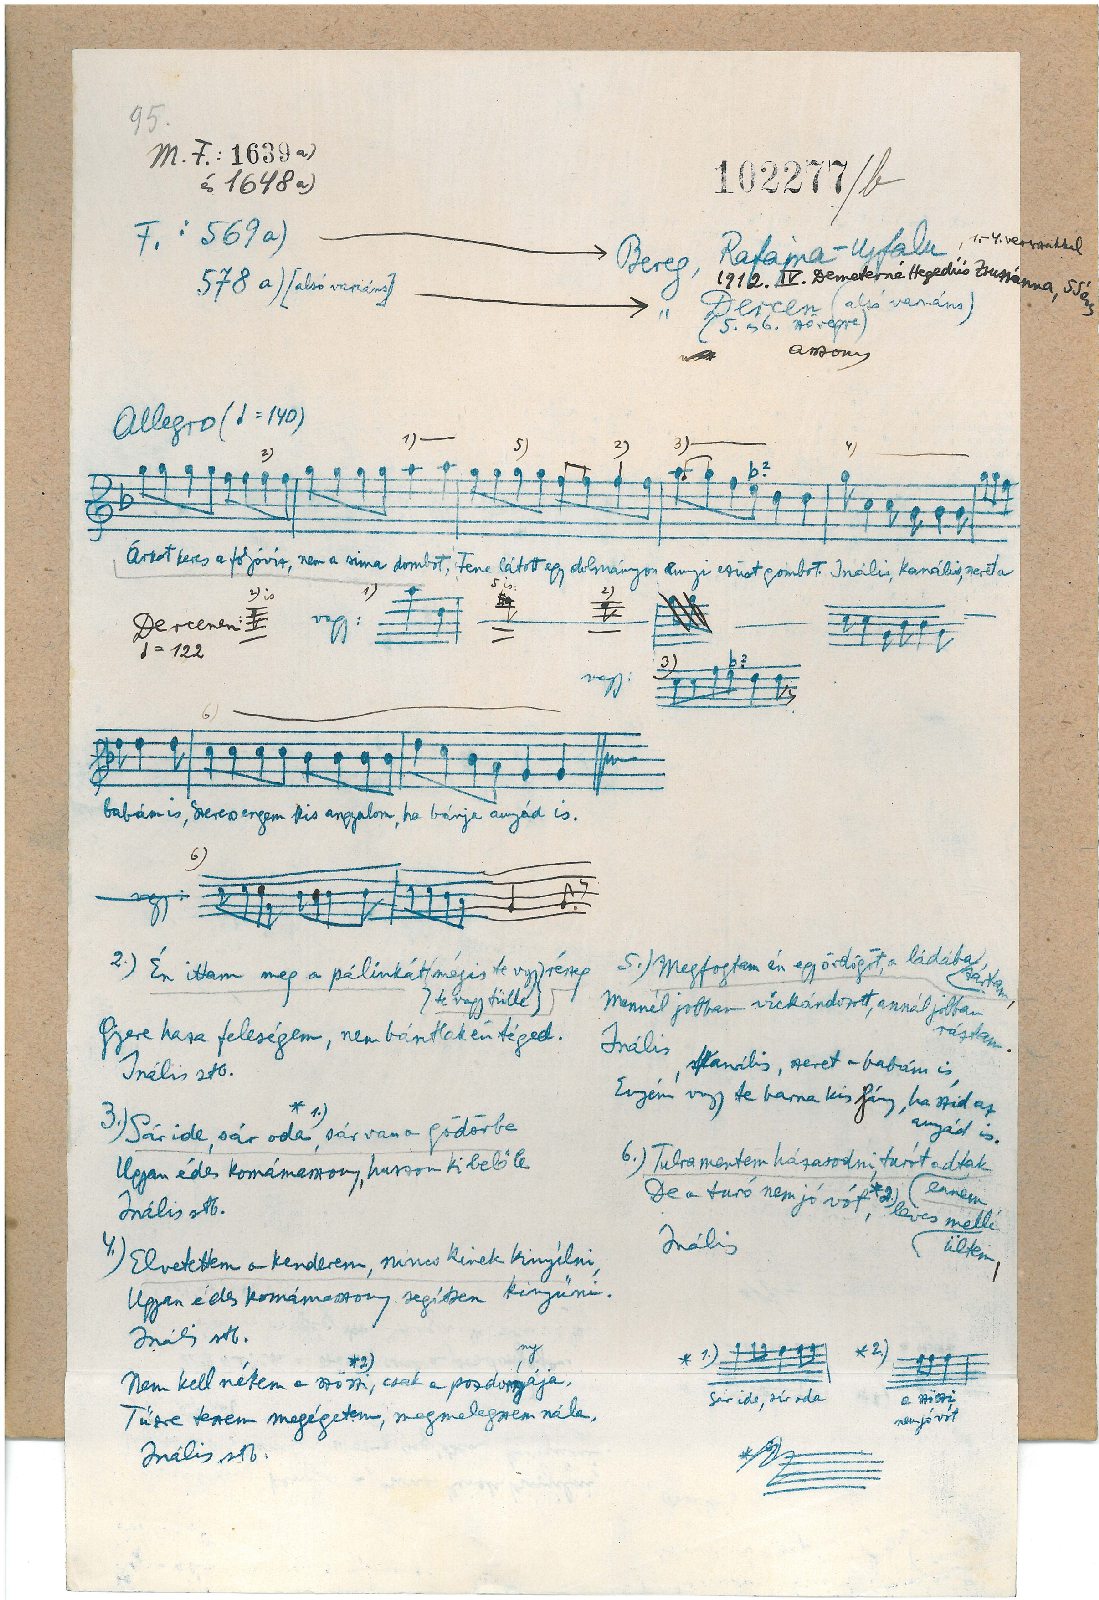 95.
M. F.: 1639 a)
és 1648 a)
102277/b
F. : 569 a)
578 a) [alsó variáns]
Bereg, Rafajna-Ujfalu, 1.-4. versszakkal
1912. IV. Demeterné Hegedűs Zsuzsánna, 55 éves
" Dercen (alsó variáns)
(5. és 6. szövegre)
asszony
Allegro (♩ = 140)
2) 1) 5) 2) 3) 4)
Árkot keres a fojóvíz, nem a sima dombot; Fene látott egy dolmányon ennyi ezüst gombot. Inális, kanális, szeret a
Dercenen:
♩ = 122
2) is
Var : 1) 5 is 2)
Var : 3)
6)
babám is, Szeress engem kis angyalom, ha bánja anyád is.
6)
vagy :
2.) Én ittam meg a pálinkát, mégis te vagy részeg
te vagy tülle
Gyere haza feleségem, nem bántlak én téged.
Inális stb.
3.) Sár ide, sár oda, *1.) sár van a gödörbe
Ugyan édes komámasszony, huzzon ki belőle
Inális stb.
4.) Elvetettem a kenderem, nincs kinek kinyílni,
Ugyan édes komámasszony segítsen kinyűni.
Inális stb.
Nem kell nékem a szöszi, *2) csak a pozdornyája.
Tűzre teszem megégetem, megmelegszem nála.
Inális stb.
5.) Megfogtam én egy ördögöt, a ládába zártam,
Mennél jobban vickándozott, annál jobban
ráztam.
Inális, Kanális, szeret a babám is,
Enyém vagy te barna kis lány, ha szid az
anyád is.
6.) Tulramentem házasodni, turót adtak
ennem
De a turó nem jó vót, *2.) leves mellé
ültem,
Inális
* 1.)
Sár ide, sár oda
* 2.)
a szöszi
nem jó vót